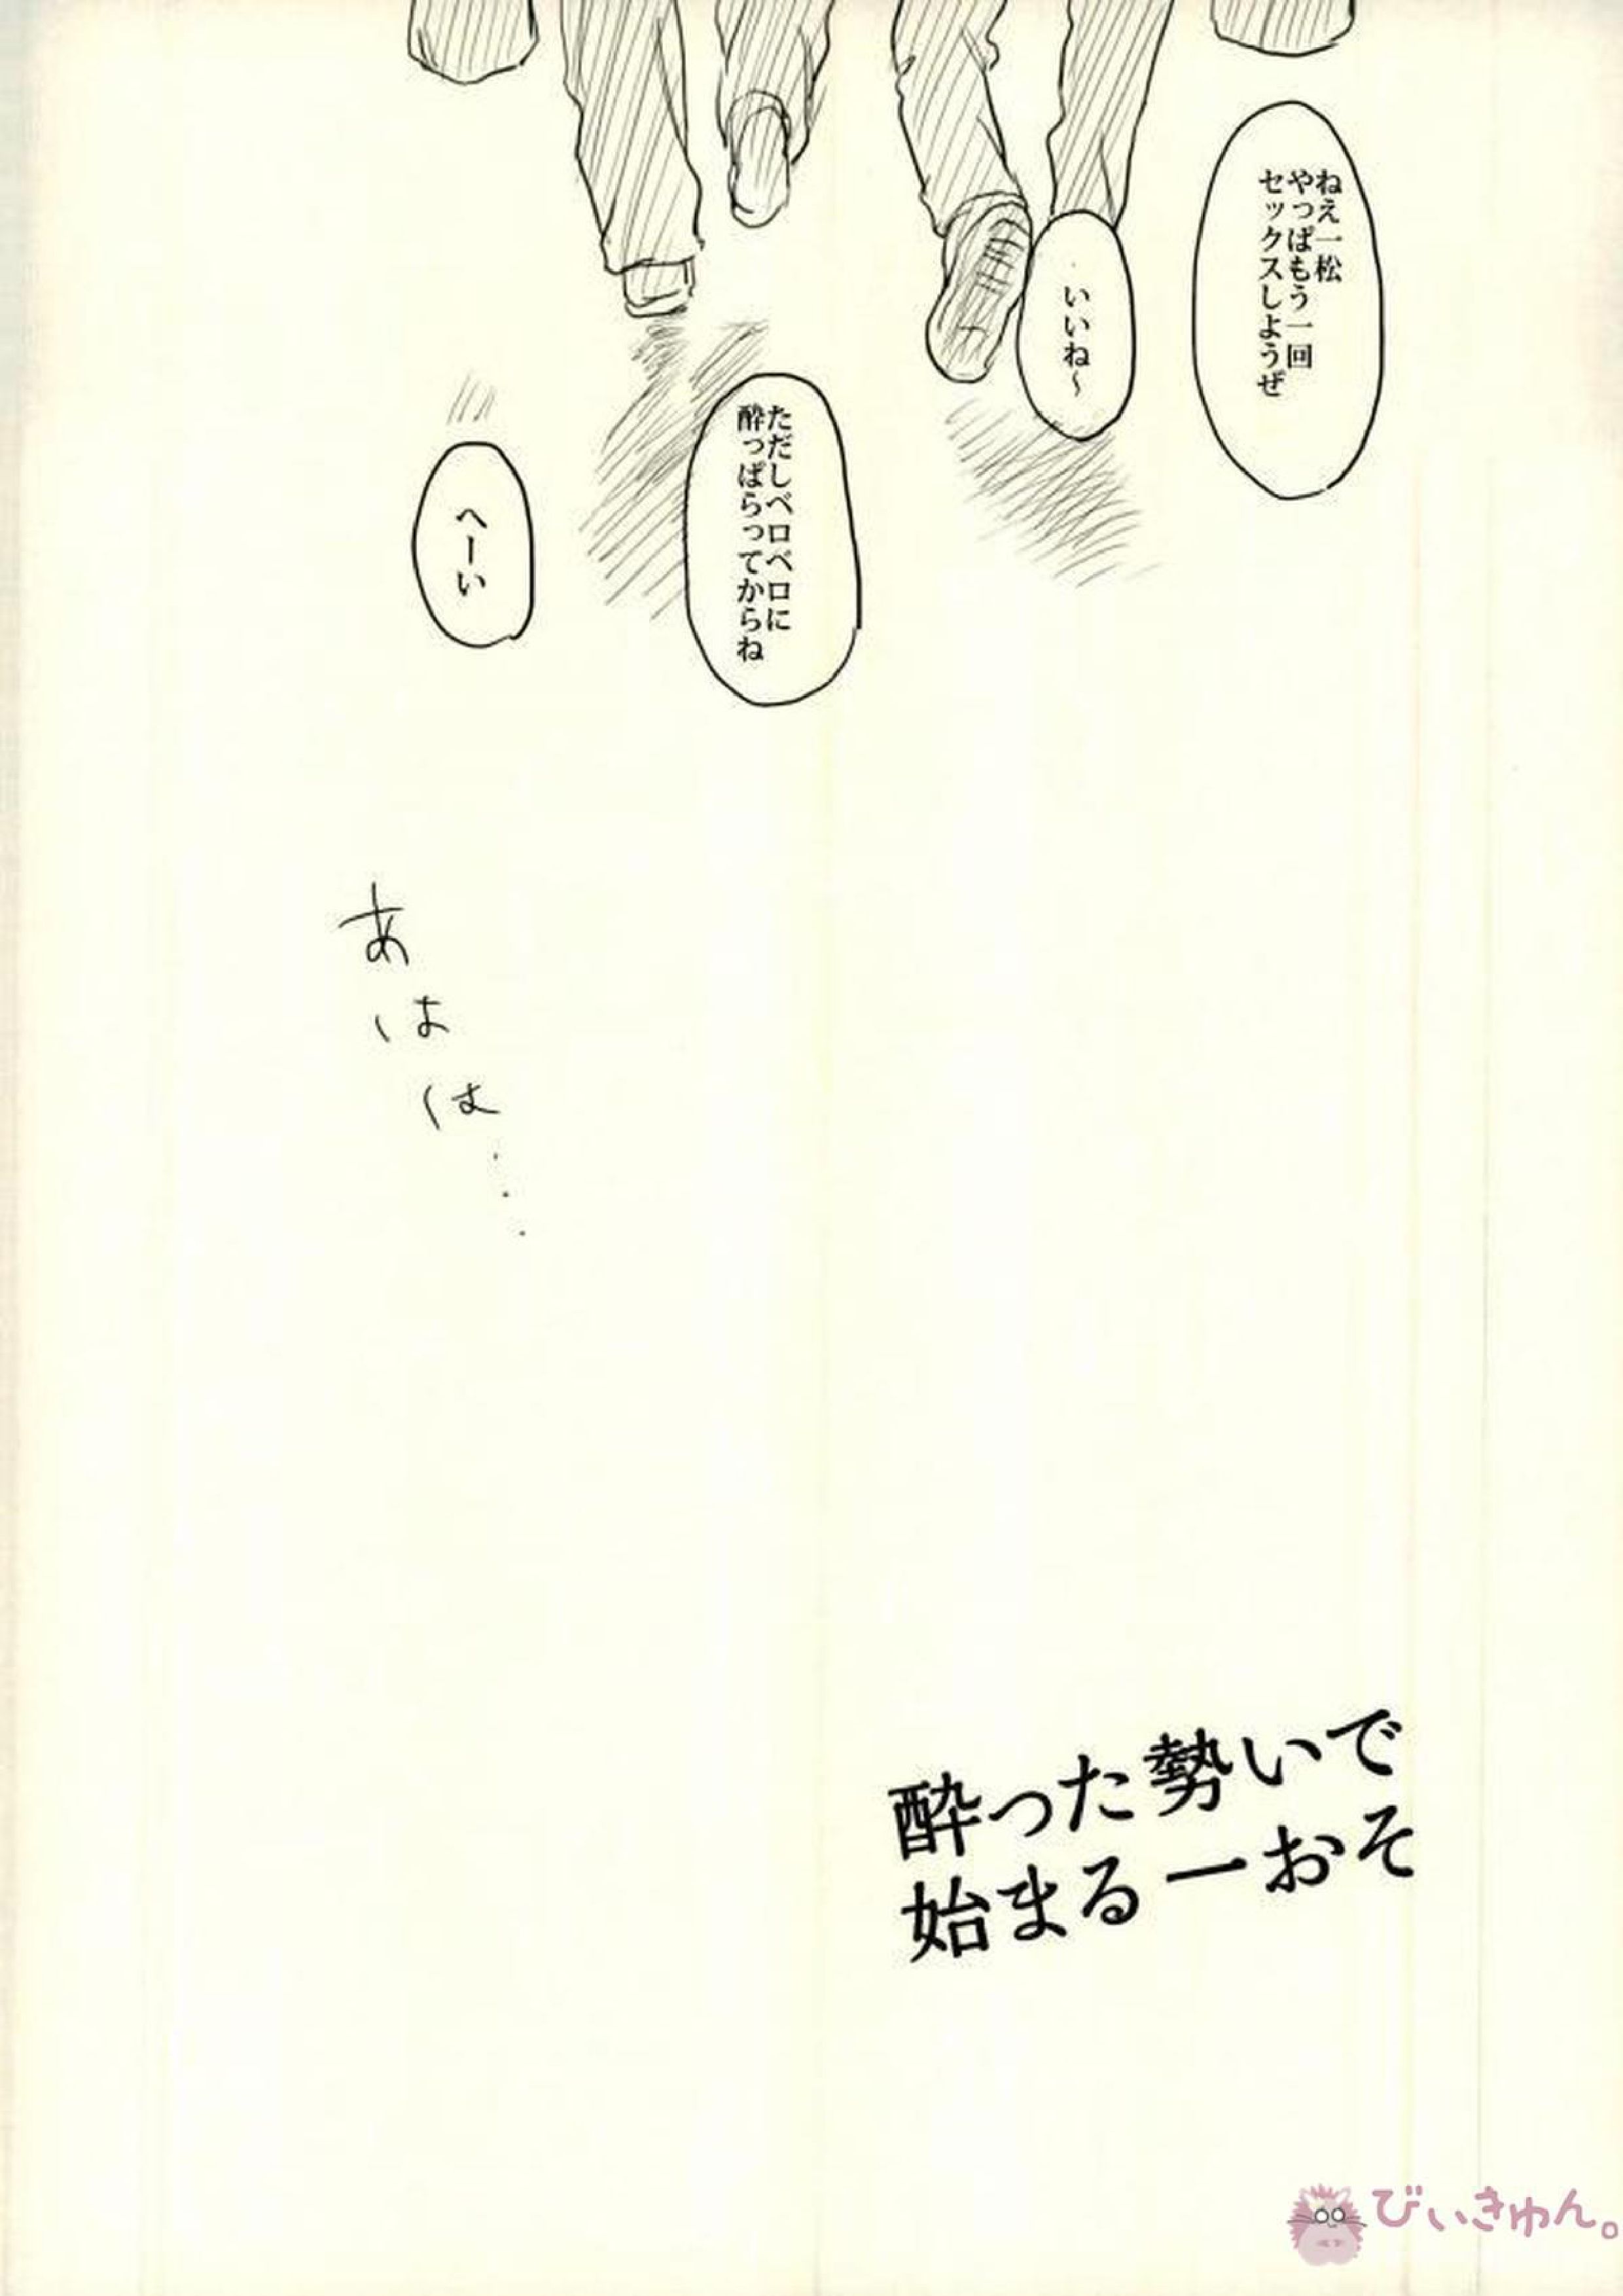 ねえ一松
やっぱもう一回
セックスしようぜ
いいね〜
ただしベロベロに
酔っぱらってからね
へーい
あはは...
酔った勢いで
始まる一おそ
びぃきゅん。